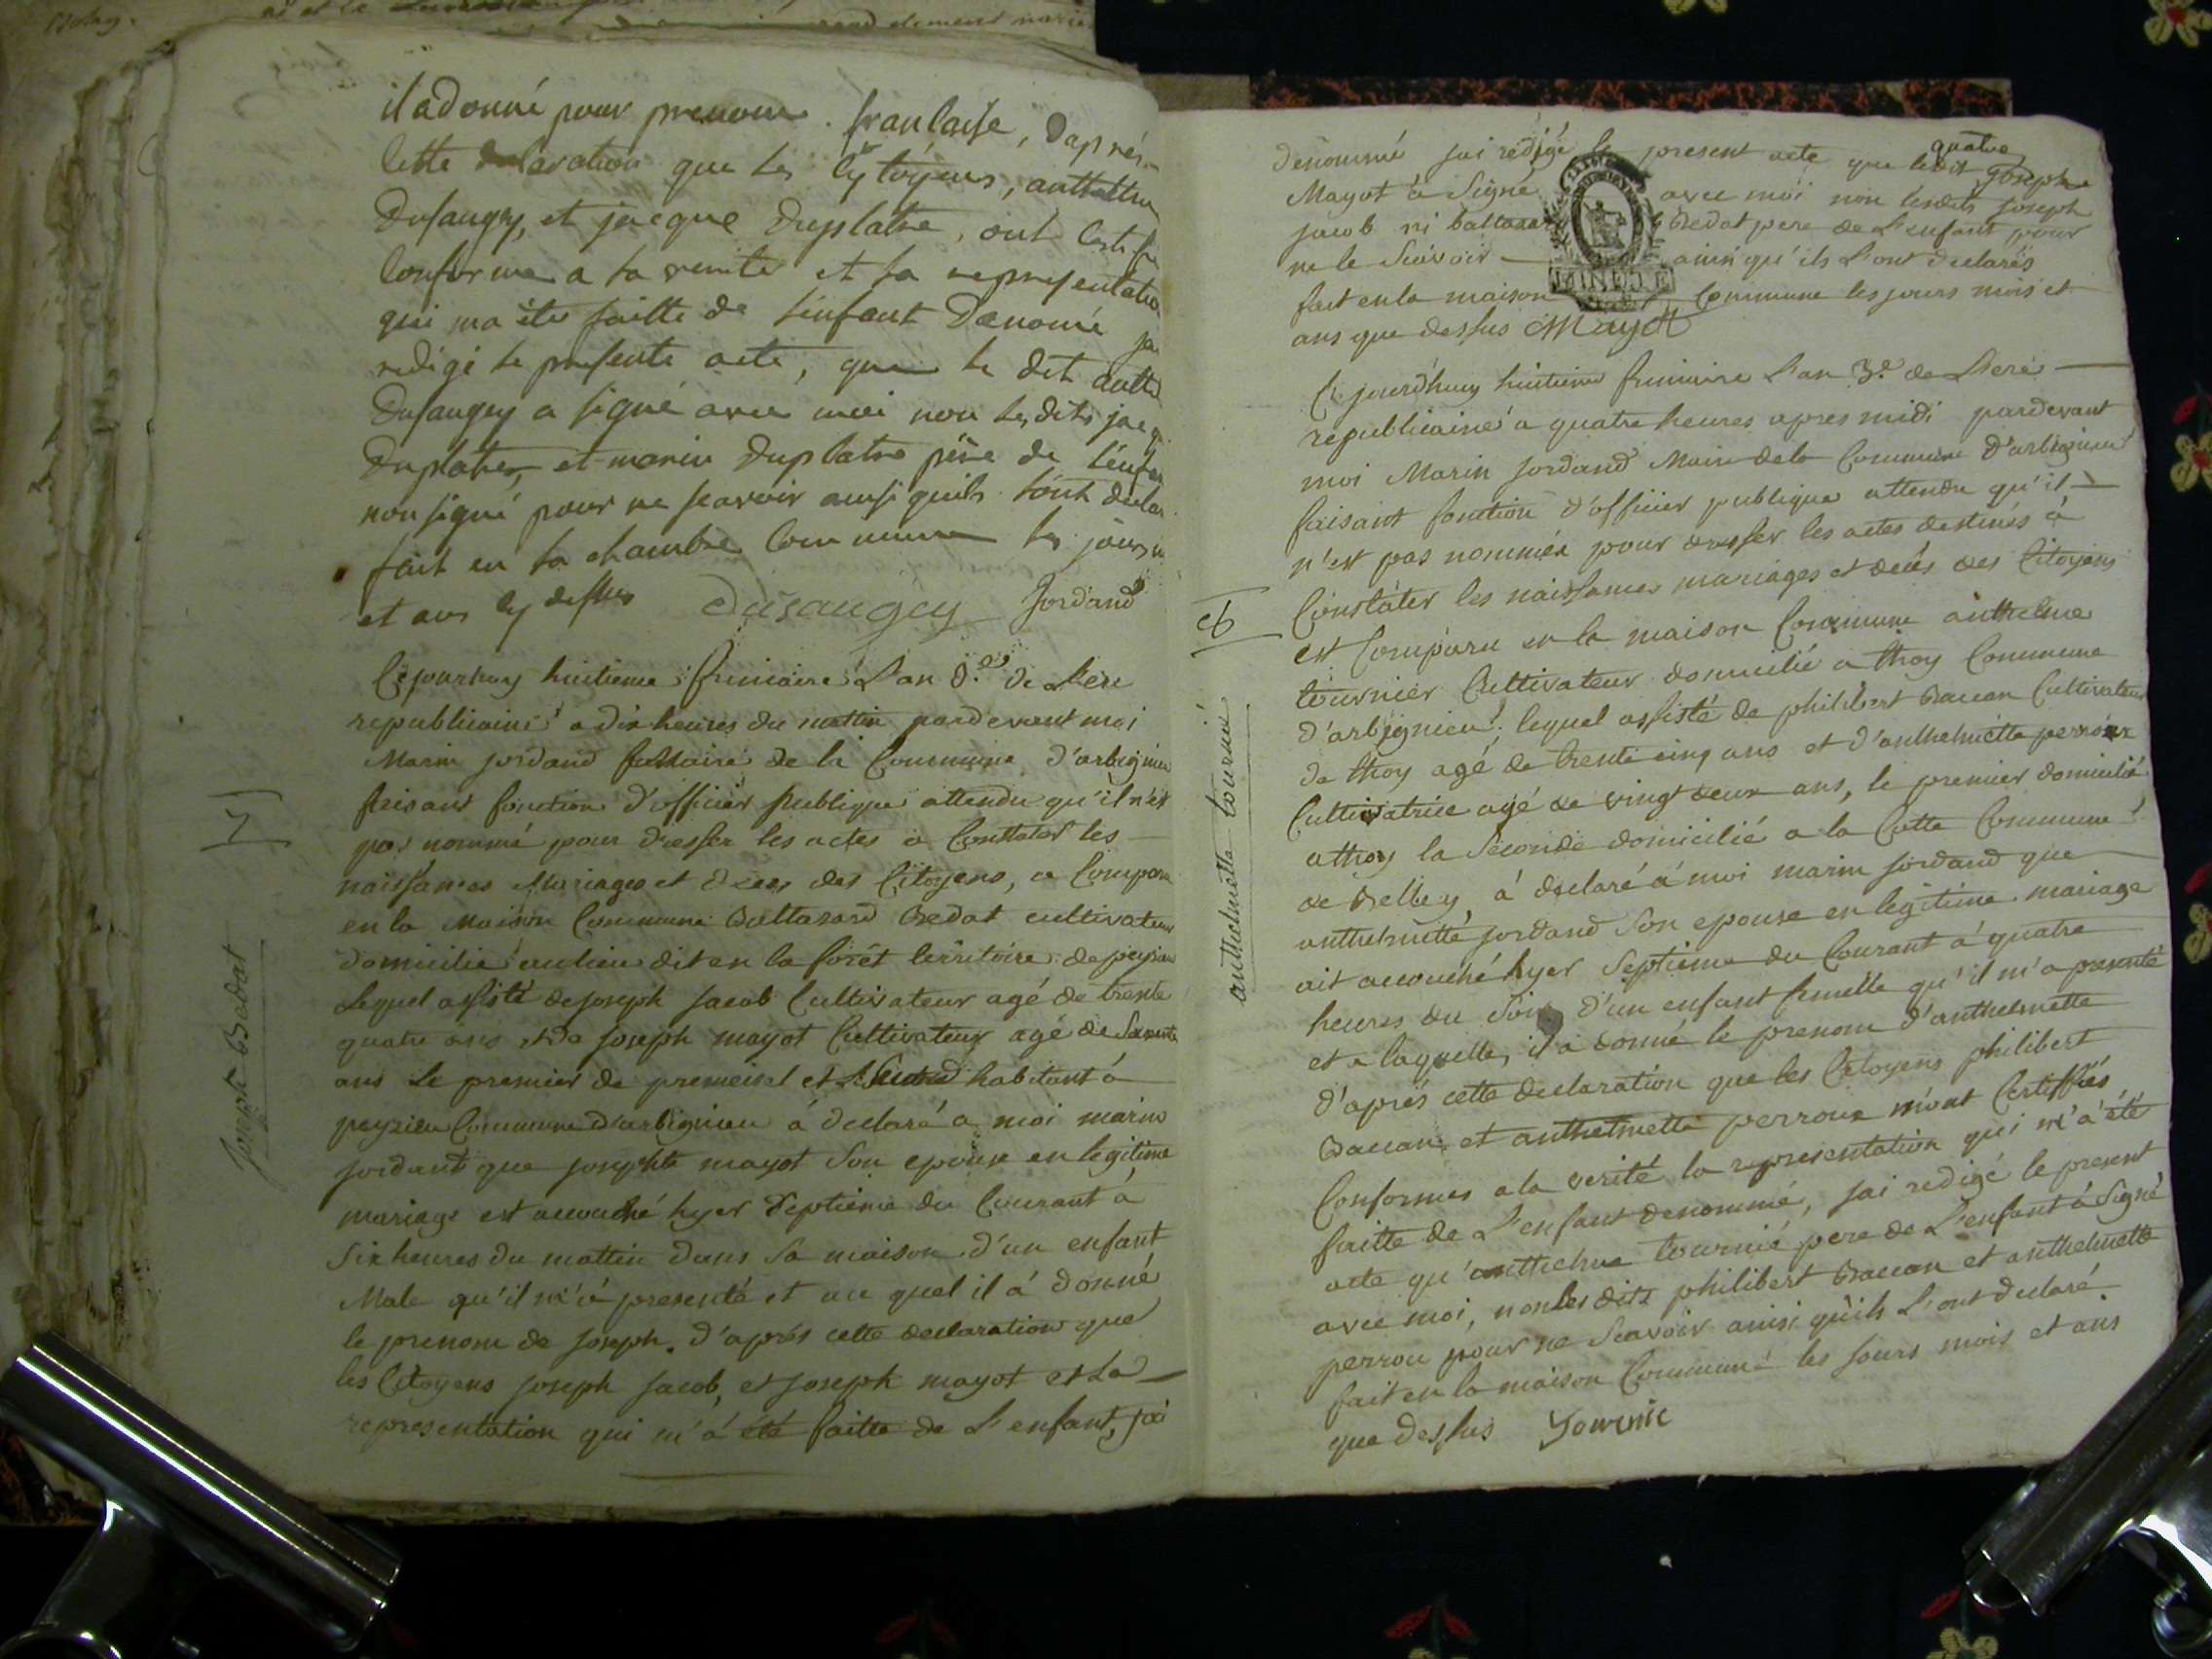 il a donné pour prenom francaise, Daprés
Cette declaration que les Cytoÿens, anthelme
Dusaugey, et jacque Duplatre, ont Certifié
Conforme a la verité et la representation
qui ma été faitte de l'enfant Denomé jai
redigé le present acte, que le dit anthel
Dusaugey a signé avec moi non les dits jacq
Duplatre, et marin Duplatre pere de l'enfan
non signé pour ne scavoir ainsi quils lont decla
fait en la chambre Commune les jours m
et ans cy dessus Dusaugey Jordand
Cejourhuy huitieme frimaire L'an 3.e de Lere
republicaine a dix heures du mattin pardevant moi
Marin jordand Maire de la Commune d'arbignieu
faisant fonction d'officier publique attendu qu'il n'est
pas nommé pour dresser les actes a Constater les
naissances Mariages et deces des Citoyens, a Comparu
en la maison Commune Baltazard Bedat cultivateur
domicilié au lieu dit en la forêt territoire de peyzieu
Lequel assisté de joseph jacob Cultivateur agé de trente
quatre ans et de joseph mayot Cultivateur agé de Soixante
ans le premier de premeisel et habitant à
peyzieu Commune d'arbignieu à declaré a moi marin
jordand que josephte mayot Son epouse en legitime
mariage est accouché hyer Septieme du Courant à
Six heures du mattin dans Sa maison d'un enfant
Male qu'il m'a presenté et au quel il à donné
le prenom de joseph. d'aprés cette declaration que
les Citoyens joseph jacob, et joseph mayot et La
representation qui m'a été faitte de L'enfant, jai
joseph Bedat
denommé jai redigé le present acte que ledit joseph
quatre
Mayot à Signé avec moi non lesdits joseph
jacob ni baltazar Bedat pere de L'enfant pour
ne le Scavoir ainsi qu'ils L'ont declarés
fait en la maison Commune les jours mois et
ans que dessus Mayot
MINUTE
Cejourdhuy huitieme frimaire L'an 3.e de Leré
republicaine à quatre heures apres midi pardevant
moi Marin jordand Maire de la Commune D'arbignieu
faisant fonction d'officier publique attendu qu'il
n'est pas nommée pour dresser les actes destinés à
Constater les naissances mariages et decés des Citoyens
est Comparu en la maison Commune anthelme
tournier Cultivateur domicilié a thoy Commune
d'arbignieu; lequel assisté de philibert Baccon Cultivateur
de thoy agé de trente cinq ans et d'anthelmette perroux
Cultivatrice agé de vingt deux ans, le premier domicilié
a thoy la Seconde domicilié a la Cotte Commune
de Belley, à declaré à moi marin jordand que
anthelmette jordand Son epouse en legitime mariage
ait accouché hyer Septieme du Courant à quatre
heures du Soir d'un enfant femelle qu'il m'a presenté
et a laquelle, il a donné le prenom d'anthelmette
d'aprés cette declaration que les Citoyens philibert
Baccon et anthelmette perroux m'ont Certiffiés
Conformes a la verité la representation qui m'a été
faitte de L'enfant denommé, jai redigé le present
acte qu'anthelme tournié pere de L'enfant à Signé
avec moi, non les dits philibert Baccon et anthelmette
perrou pour ne Scavoir ainsi qu'ils L'ont declaré
fait en la maison Commune les jours mois et ans
que dessus Tournie
anthelmette tournié